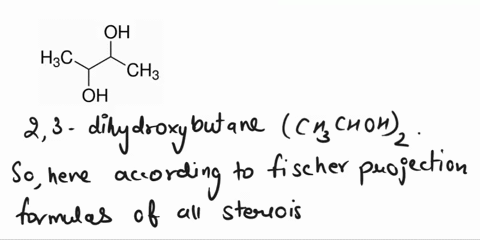 OH
H₃C
CH₃
OH
2,3 - dihydroxybutane (CH₃CHOH)₂.
So, here according to fischer projection
formulas of all sterois